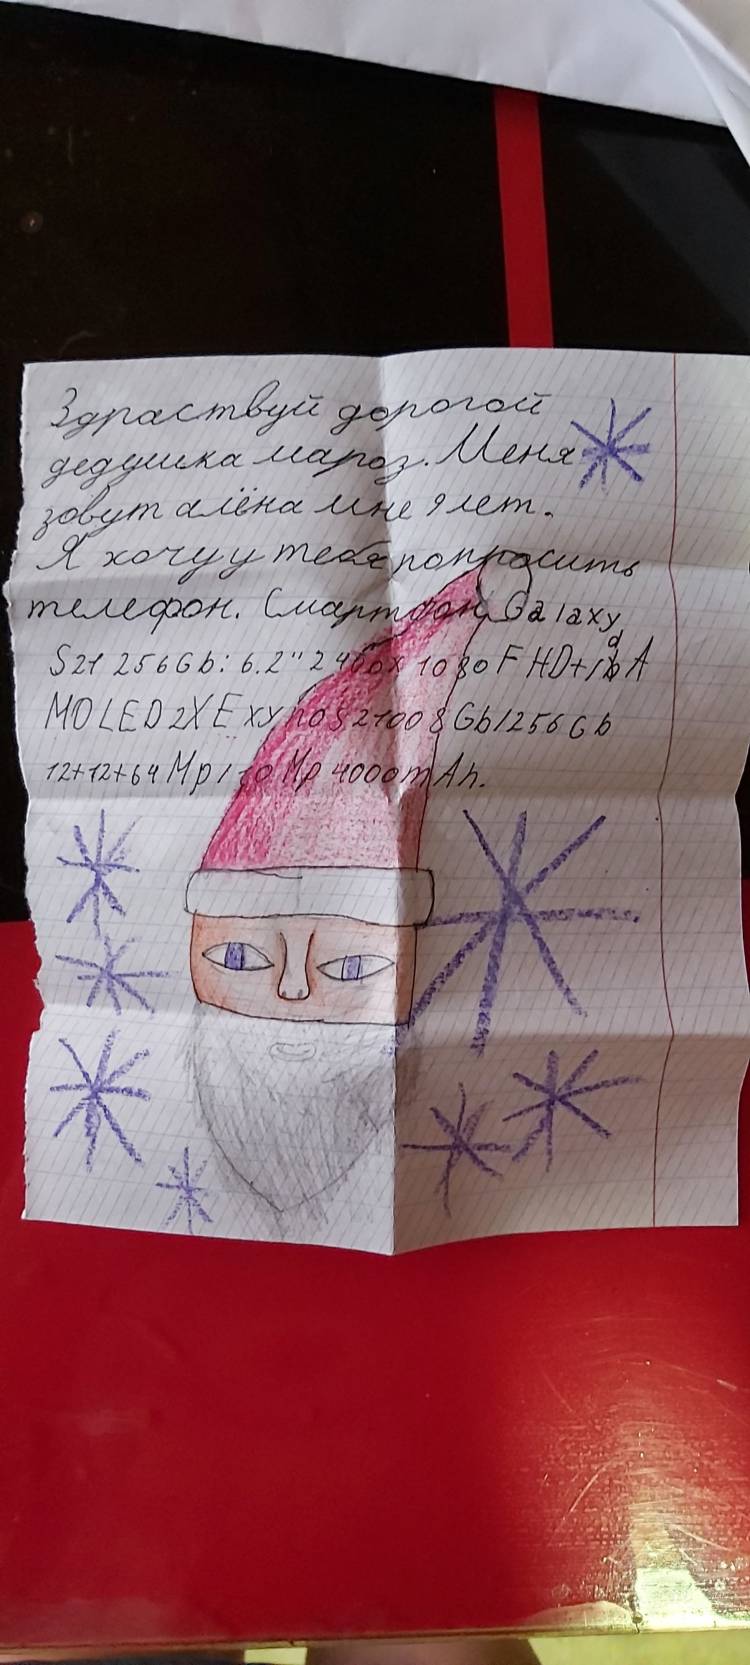 Здраствуй дорогой
дедушка мароз. Меня
зовут алёна мне 9 лет.
Я хочу у тебя попросить
телефон. Смартфон Galaxy
S21 256Gb: 6.2" 2400x1080 FHD+/dA
MOLED 2X Exynos 2100 8Gb/256Gb
12+12+64Mp/10Mp 4000mAh.